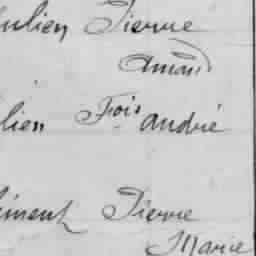 Julien Pierre
Amand
lien Fois André
iment Pierre
Marie